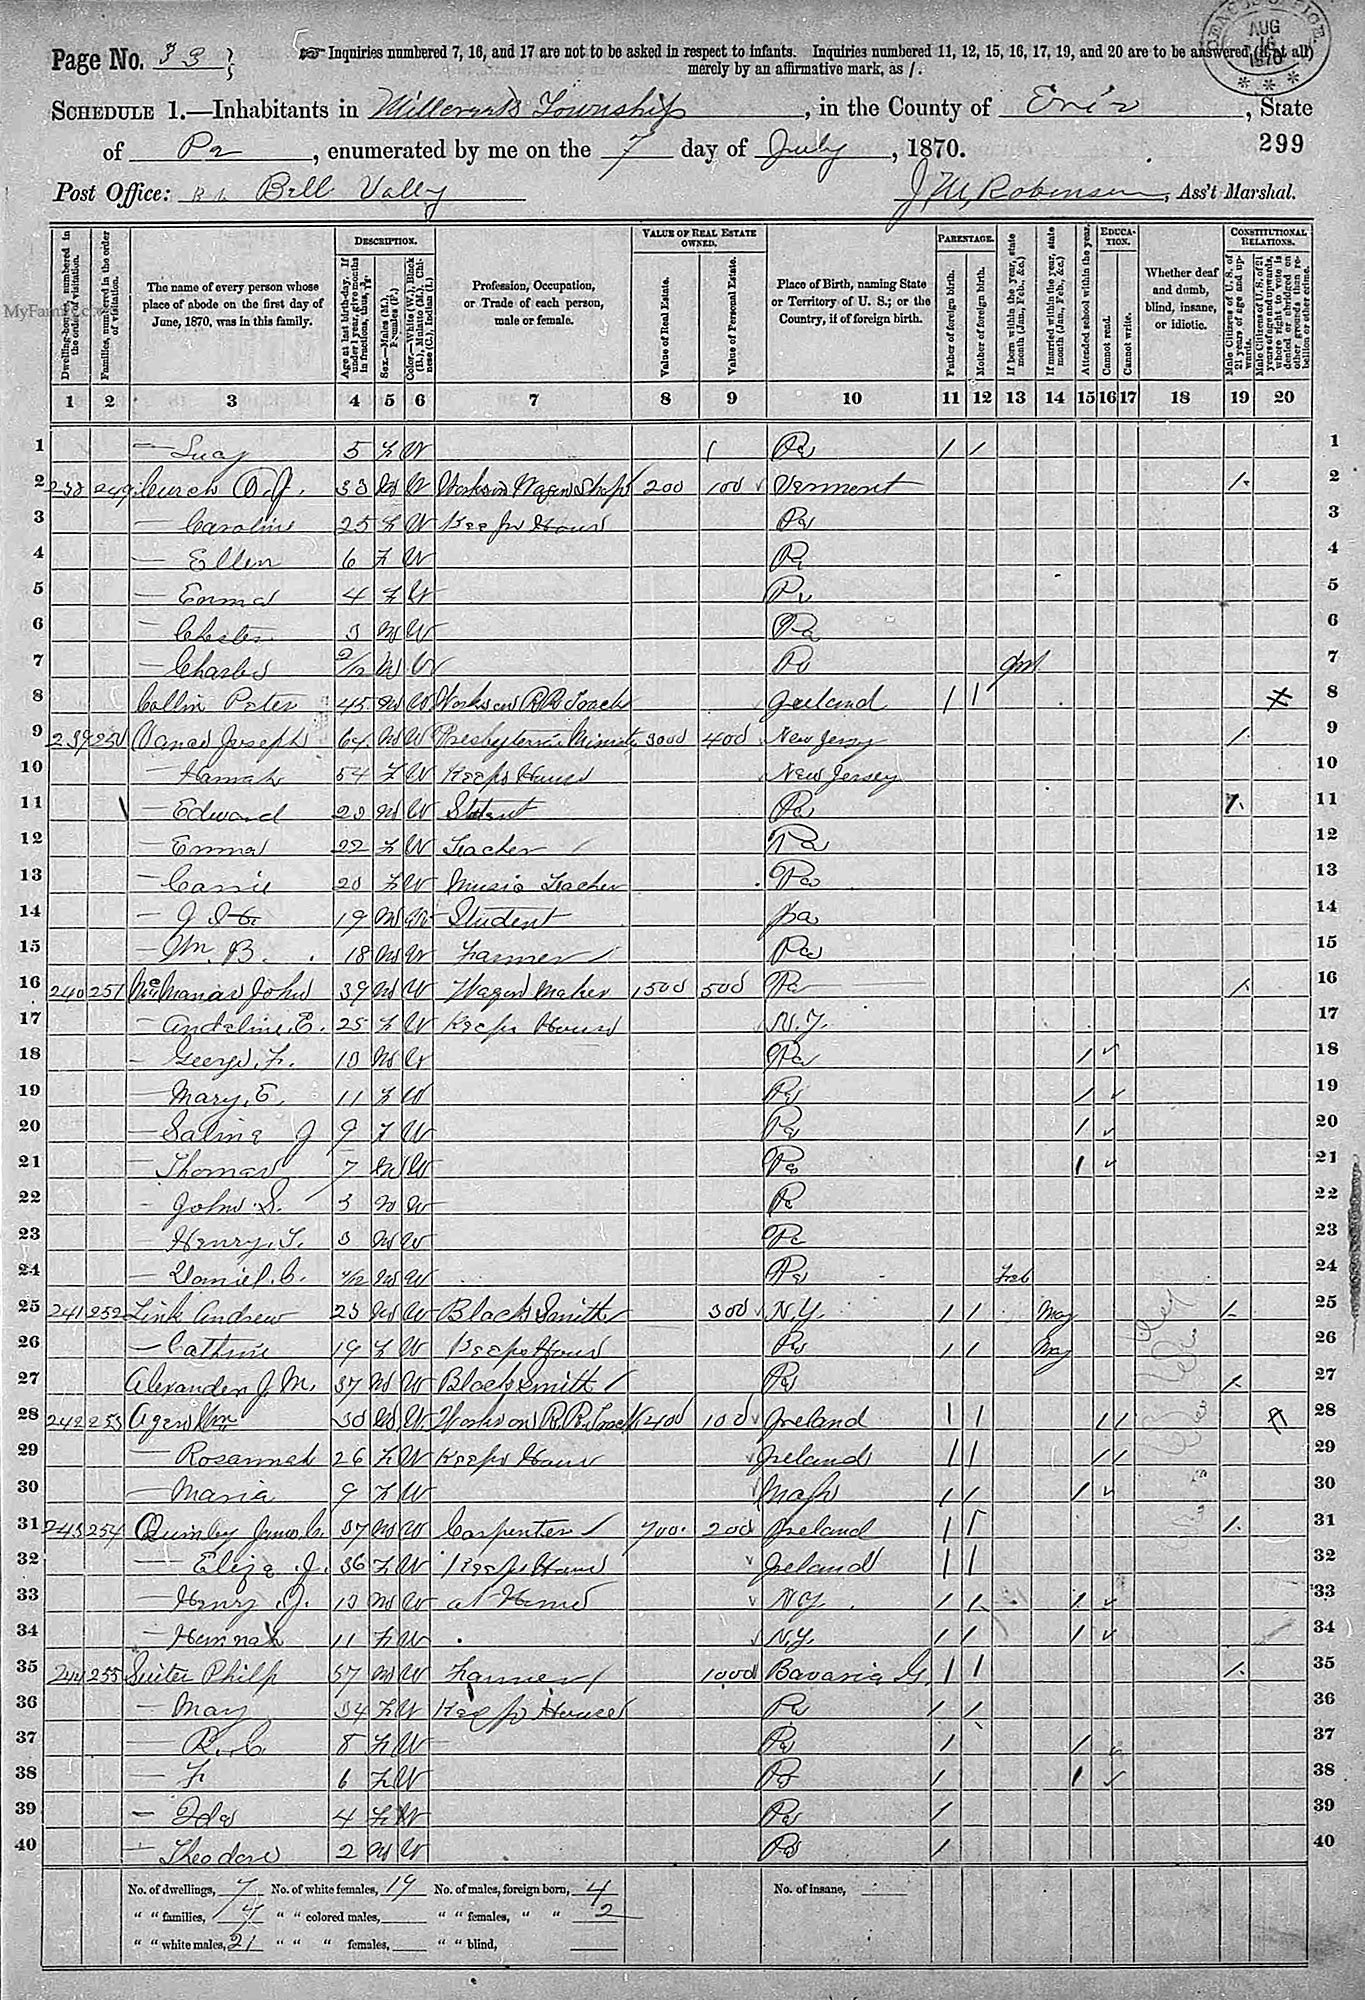 CENSUS OFFICE
AUG
16
1870
Page No. 33
Inquiries numbered 7, 16, and 17 are not to be asked in respect to infants. Inquiries numbered 11, 12, 15, 16, 17, 19, and 20 are to be answered (if at all)
merely by an affirmative mark, as /.
SCHEDULE 1.—Inhabitants in Township, in the County of Erie, State
of Pa, enumerated by me on the 7 day of July, 1870.
299
Post Office: Bell Vally
J. M. Robinson, Ass't Marshal.
MyFam
Dwelling-houses, numbered in the order of visitation.
Families, numbered in the order of visitation.
The name of every person whose place of abode on the first day of June, 1870, was in this family.
DESCRIPTION.
Age at last birth-day. If under 1 year, give months in fractions, thus, 3/12
Sex.—Males (M.), Females (F.)
Color.—White (W.), Black (B.), Mulatto (M.), Chinese (C.), Indian (I.)
Profession, Occupation, or Trade of each person, male or female.
VALUE OF REAL ESTATE OWNED.
Value of Real Estate.
Value of Personal Estate.
Place of Birth, naming State or Territory of U. S.; or the Country, if of foreign birth.
PARENTAGE.
Father of foreign birth.
Mother of foreign birth.
If born within the year, state month (Jan., Feb., &c.)
If married within the year, state month (Jan., Feb., &c.)
Attended school within the year.
EDUCATION.
Cannot read.
Cannot write.
Whether deaf and dumb, blind, insane, or idiotic.
CONSTITUTIONAL RELATIONS.
Male Citizens of U. S. of 21 years of age and upwards.
Male Citizens of U. S. of 21 years of age and upwards, where right to vote is denied or abridged on other grounds than rebellion or other crime.
1 2 3 4 5 6 7 8 9 10 11 12 13 14 15 16 17 18 19 20
1 — Lucy 5 F W Pa / / 1
2 238 249 33 M W Works in Wagon Shop 200 100 Vermont / 2
3 — Caroline 25 F W Keeps House Pa 3
4 — Ellen 6 F W Pa 4
5 — Emma 4 F W Pa 5
6 — Chester 3 M W Pa 6
7 — Charles 9/12 M W Pa 7
8 Collin Peter 45 M W Works on R R Track Ireland / / X 8
9 239 250 Vance Joseph 64 M W Presbyterian Minister 3000 400 New Jersy / 9
10 — Hannah 54 F W Keeps House New Jersey 10
11 — Edward 23 M W Student Pa / 11
12 — Emma 22 F W Teacher Pa 12
13 — Carrie 20 F W Music Teacher Pa 13
14 — 19 M W Student Pa 14
15 — Wm. B. 18 M W Farmer Pa 15
16 240 251 McManas John 39 M W Wagon Maker 1500 500 Pa / 16
17 — Andeline E. 25 F W Keeps House N.Y. 17
18 — George F. 13 M W Pa / ✓ 18
19 — Mary E. 11 F W Pa / ✓ 19
20 — Salina J 9 F W Pa / ✓ 20
21 — Thomas 7 M W Pa / ✓ 21
22 — John S. 3 M W Pa 22
23 — Henry T. 3 M W Pa 23
24 — Daniel C. 4/12 M W Pa Feb 24
25 241 252 Link Andrew 23 M W Black Smith 300 N.Y. / / May / 25
26 — Cathrine 19 F W Keeps House Pa / / May 26
27 Alexander J. M. 37 M W Blacksmith Pa / 27
28 242 253 Agen Wm 30 M W Works on R. R. Track 400 100 Ireland / / / / X 28
29 — Rosannah 26 F W Keeps House Ireland / / / / 29
30 — Maria 9 F W Mass / / / ✓ 30
31 243 254 Quimby James C. 37 M W Carpenter 700 200 Ireland / / / 31
32 — Eliza J. 36 F W Keeps House Ireland / / 32
33 — Henry J. 13 M W at Home N.Y. / / / ✓ 33
34 — Hannah 11 F W N.Y. / / / ✓ 34
35 244 255 Suiter Philp 37 M W Farmer 1000 Bavaria G. / / / 35
36 — Mary 34 F W Keeps House Pa / / 36
37 — R. C 8 F W Pa / / ✓ 37
38 — F 6 F W Pa / / ✓ 38
39 — Ida 4 F W Pa / 39
40 — Theodore 2 M W Pa / 40
No. of dwellings, 7 No. of white females, 19 No. of males, foreign born, 4 No. of insane,
" " families, 7 " " colored males, " " females, " " 2
" " white males, 21 " " " females, " " blind,